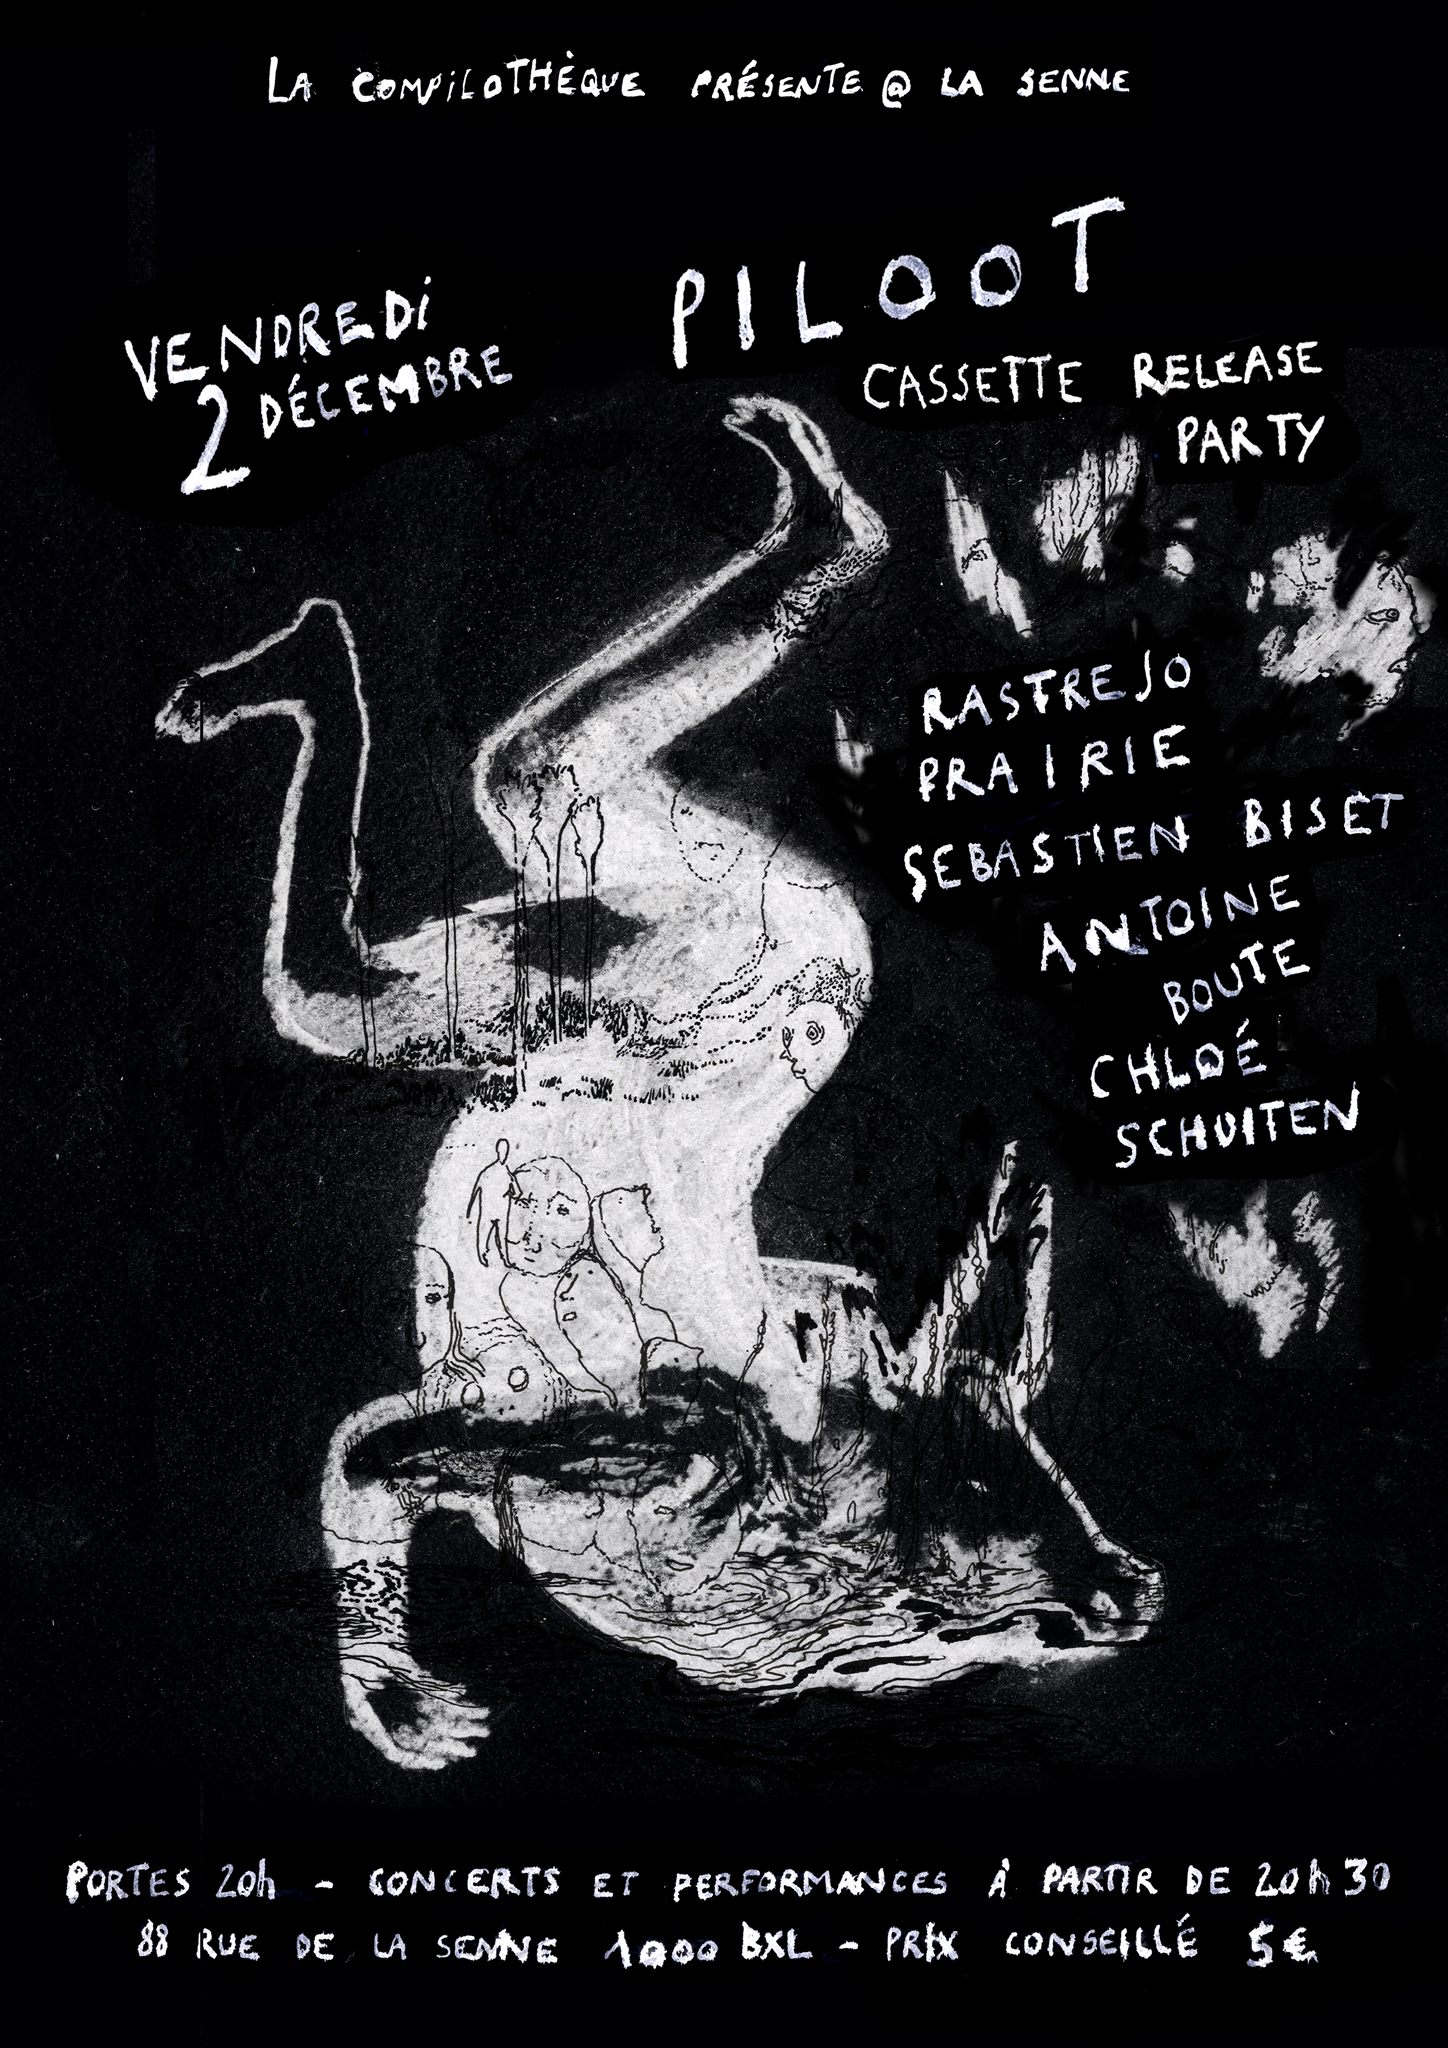 LA COMPILOTHÈQUE PRÉSENTE @ LA SENNE
VENDREDI
2 DÉCEMBRE
PILOOT
CASSETTE RELEASE
PARTY
RASTREJO
PRAIRIE
SEBASTIEN BISET
ANTOINE
BOUTE
CHLOÉ
SCHUITEN
PORTES 20h - CONCERTS ET PERFORMANCES À PARTIR DE 20h30
88 RUE DE LA SENNE 1000 BXL - PRIX CONSEILLÉ 5€